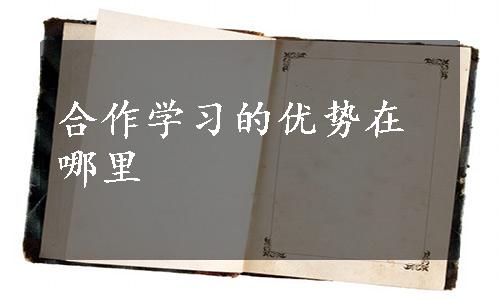 合作学习的优势在
哪里